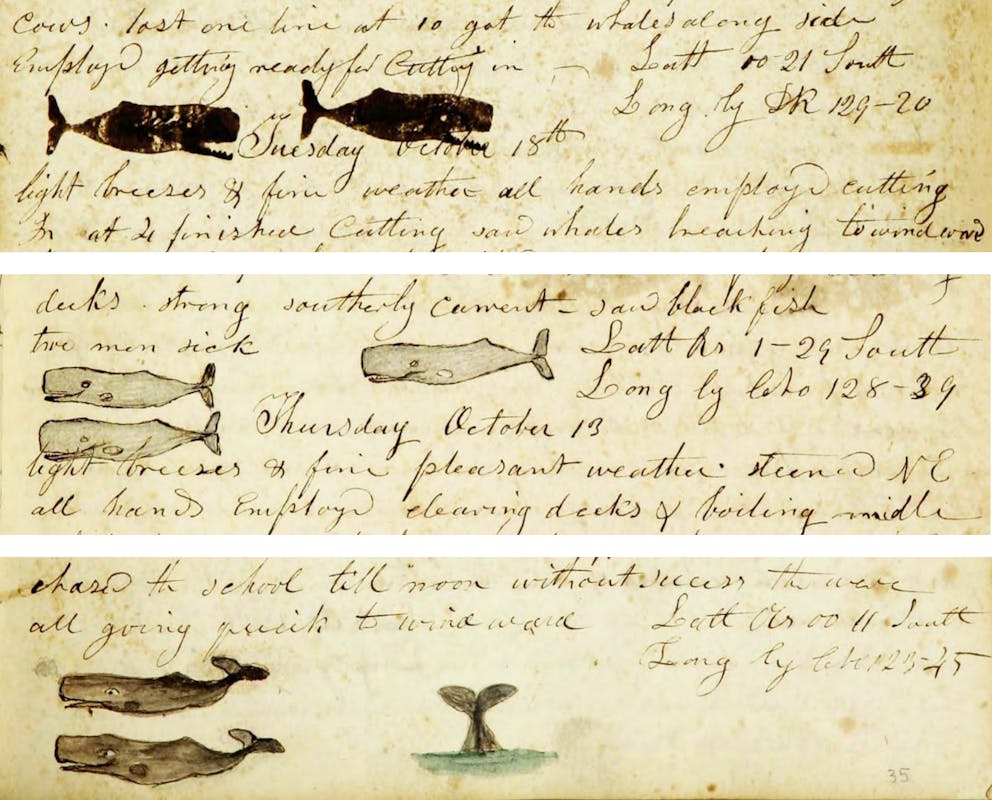 cows. lost one line at 10 got th whales along side
Employd getting ready for Cutting in
Latt 00-21 South
Long by DR 129-20
Tuesday October 18th
light breezes & fine weather all hands employd cutting
In at 4 finished Cutting saw whales breaching to windward
decks. strong southerly current - saw black fish
two men sick
Latt Obs 1-29 South
Long by 128-39
Thursday October 13
light breezes & fine pleasant weather steered NE
all hands Employd clearing decks & boiling middle
chased th school till noon without success the were
all going quick to windward
Latt Obs 00 11 South
Long by
35